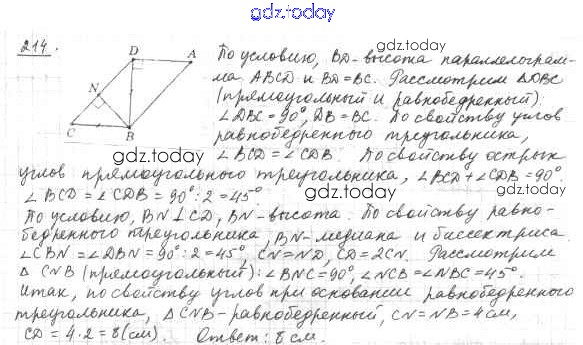 gdz.today
gdz.today
214.
D
A
N
C
B
По условию, BD-высота параллелограм-
ма ABCD и BD=BC. Рассмотрим △DBC
(прямоугольный и равнобедренный):
∠DBC = 90°, DB = BC. По свойству углов
равнобедренного треугольника,
∠BCD=∠CDB. По свойству острых
углов прямоугольного треугольника, ∠BCD+∠CDB=90°.
∠BCD=∠CDB=90°:2=45°
По условию, BN⊥CD, BN-высота. По свойству равно-
бедренного треугольника, BN-медиана и биссектриса.
∠CBN=∠DBN=90°:2=45°, CN=ND, CD=2CN. Рассмотрим
△ CNB (прямоугольный): ∠BNC=90°, ∠NCB=∠NBC=45°.
Итак, по свойству углов при основании равнобедренного
треугольника, △CNB-равнобедренный, CN=NB=4см,
CD = 4·2=8(см). Ответ: 8 см.
gdz.today
gdz.today
gdz.today
gdz.today
gdz.today
gdz.today
gdz.today